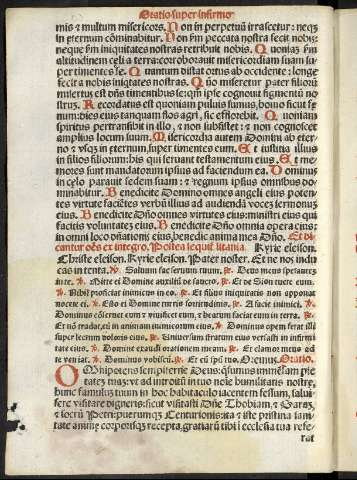 Oratio super infirmo
mis & multum misericors. Non in perpetuū irascetur: neqȝ
in eternum cōminabitur. Non fm̄ peccata nostra fecit nobis:
neque fm̄ iniquitates nostras retribuit nobis. Quoniaȝ fm̄
altitudinem celi a terra: coroborauit misericordiam suam su-
per timentes se. Quantum distat ortus ab occidente: longe
fecit a nobis iniqtates nostras. Quō miseretur pater filiorū
misertus est dn̄s timentibus se: qm̄ ipse cognouit figmentū no
strū. Recordatus est quoniam puluis sumus, homo sicut fe
num: dies eius tanquam flos agri, sic efflorebit. Quoniam
spiritus pertransibit in illo, & non subsistet: & non cognoscet
amplius locum suum. Misericordia autem Domini ab eter-
no & vsqȝ in eternum, super timentes eum. Et iustitia illius
in filios filiorum: his qui seruant testamentum eius. Et me
mores sunt mandatorum ipsius ad faciendum ea. Dominus
in celo parauit sedem suam: & regnum ipsius omnibus do-
minabitur. Benedicite Domino omnes angeli eius: poten-
tes virtute faciētes verbū illius ad audiendā vocē sermonuȝ
eius. Benedicite Dn̄o omnes virtutes eius: ministri eius qui
facitis voluntatē eius. Benedicite Dn̄o omnia opera eius:
in omni loco dn̄ationis eius, benedic anima mea Dn̄o. Et di-
cantur oēs ex integro. Postea sequit̄ litania. Kyrie eleison.
Christe eleison. Kyrie eleison. Pater noster. Et ne nos indu
cas in tenta. ℣. Saluum fac seruum tuum. ℟. Deus meus sperantem
in te. ℣. Mitte ei Domine auxiliū de sancto. ℟. Et de Sion tuere eum.
℣. Nihil proficiat inimicus in eo. ℟. Et filius iniquitatis non apponat
nocere ei. ℣. Esto ei Domine turris fortitudinis. ℟. A facie inimici. ℣.
Dominus cōseruet eum & viuificet eum, & beatum faciat eum in terra. ℟.
Et nō tradat eū in animam inimicorum eius. ℣. Dominus opem ferat illi
super lectum doloris eius. ℟. Uniuersum stratum eius versasti in infirmi
tate eius. ℣. Domine exaudi orationem meam. ℟. Et clamor meus ad
te veniat. ℣. Dominus vobiscū. ℟. Et cū sp̄u tuo. Oremus. Oratio.
OMnipotens sempiterne Deus: q̄sumus immēsam pie
tatez tuaȝ: vt ad introitū in tuo noīe humilitatis nostrę,
hunc famulū tuum in hoc habitaculo iacentem fessum, salui-
fere visitare digneris: sicut visitasti Dn̄e Thobiam, & Saraȝ,
& socrū Petri: puerumqȝ Centurionis: ita & iste pristina sani-
tate animę corporisqȝ recepta, gratiarū tibi i ecclesia tua refe
rat